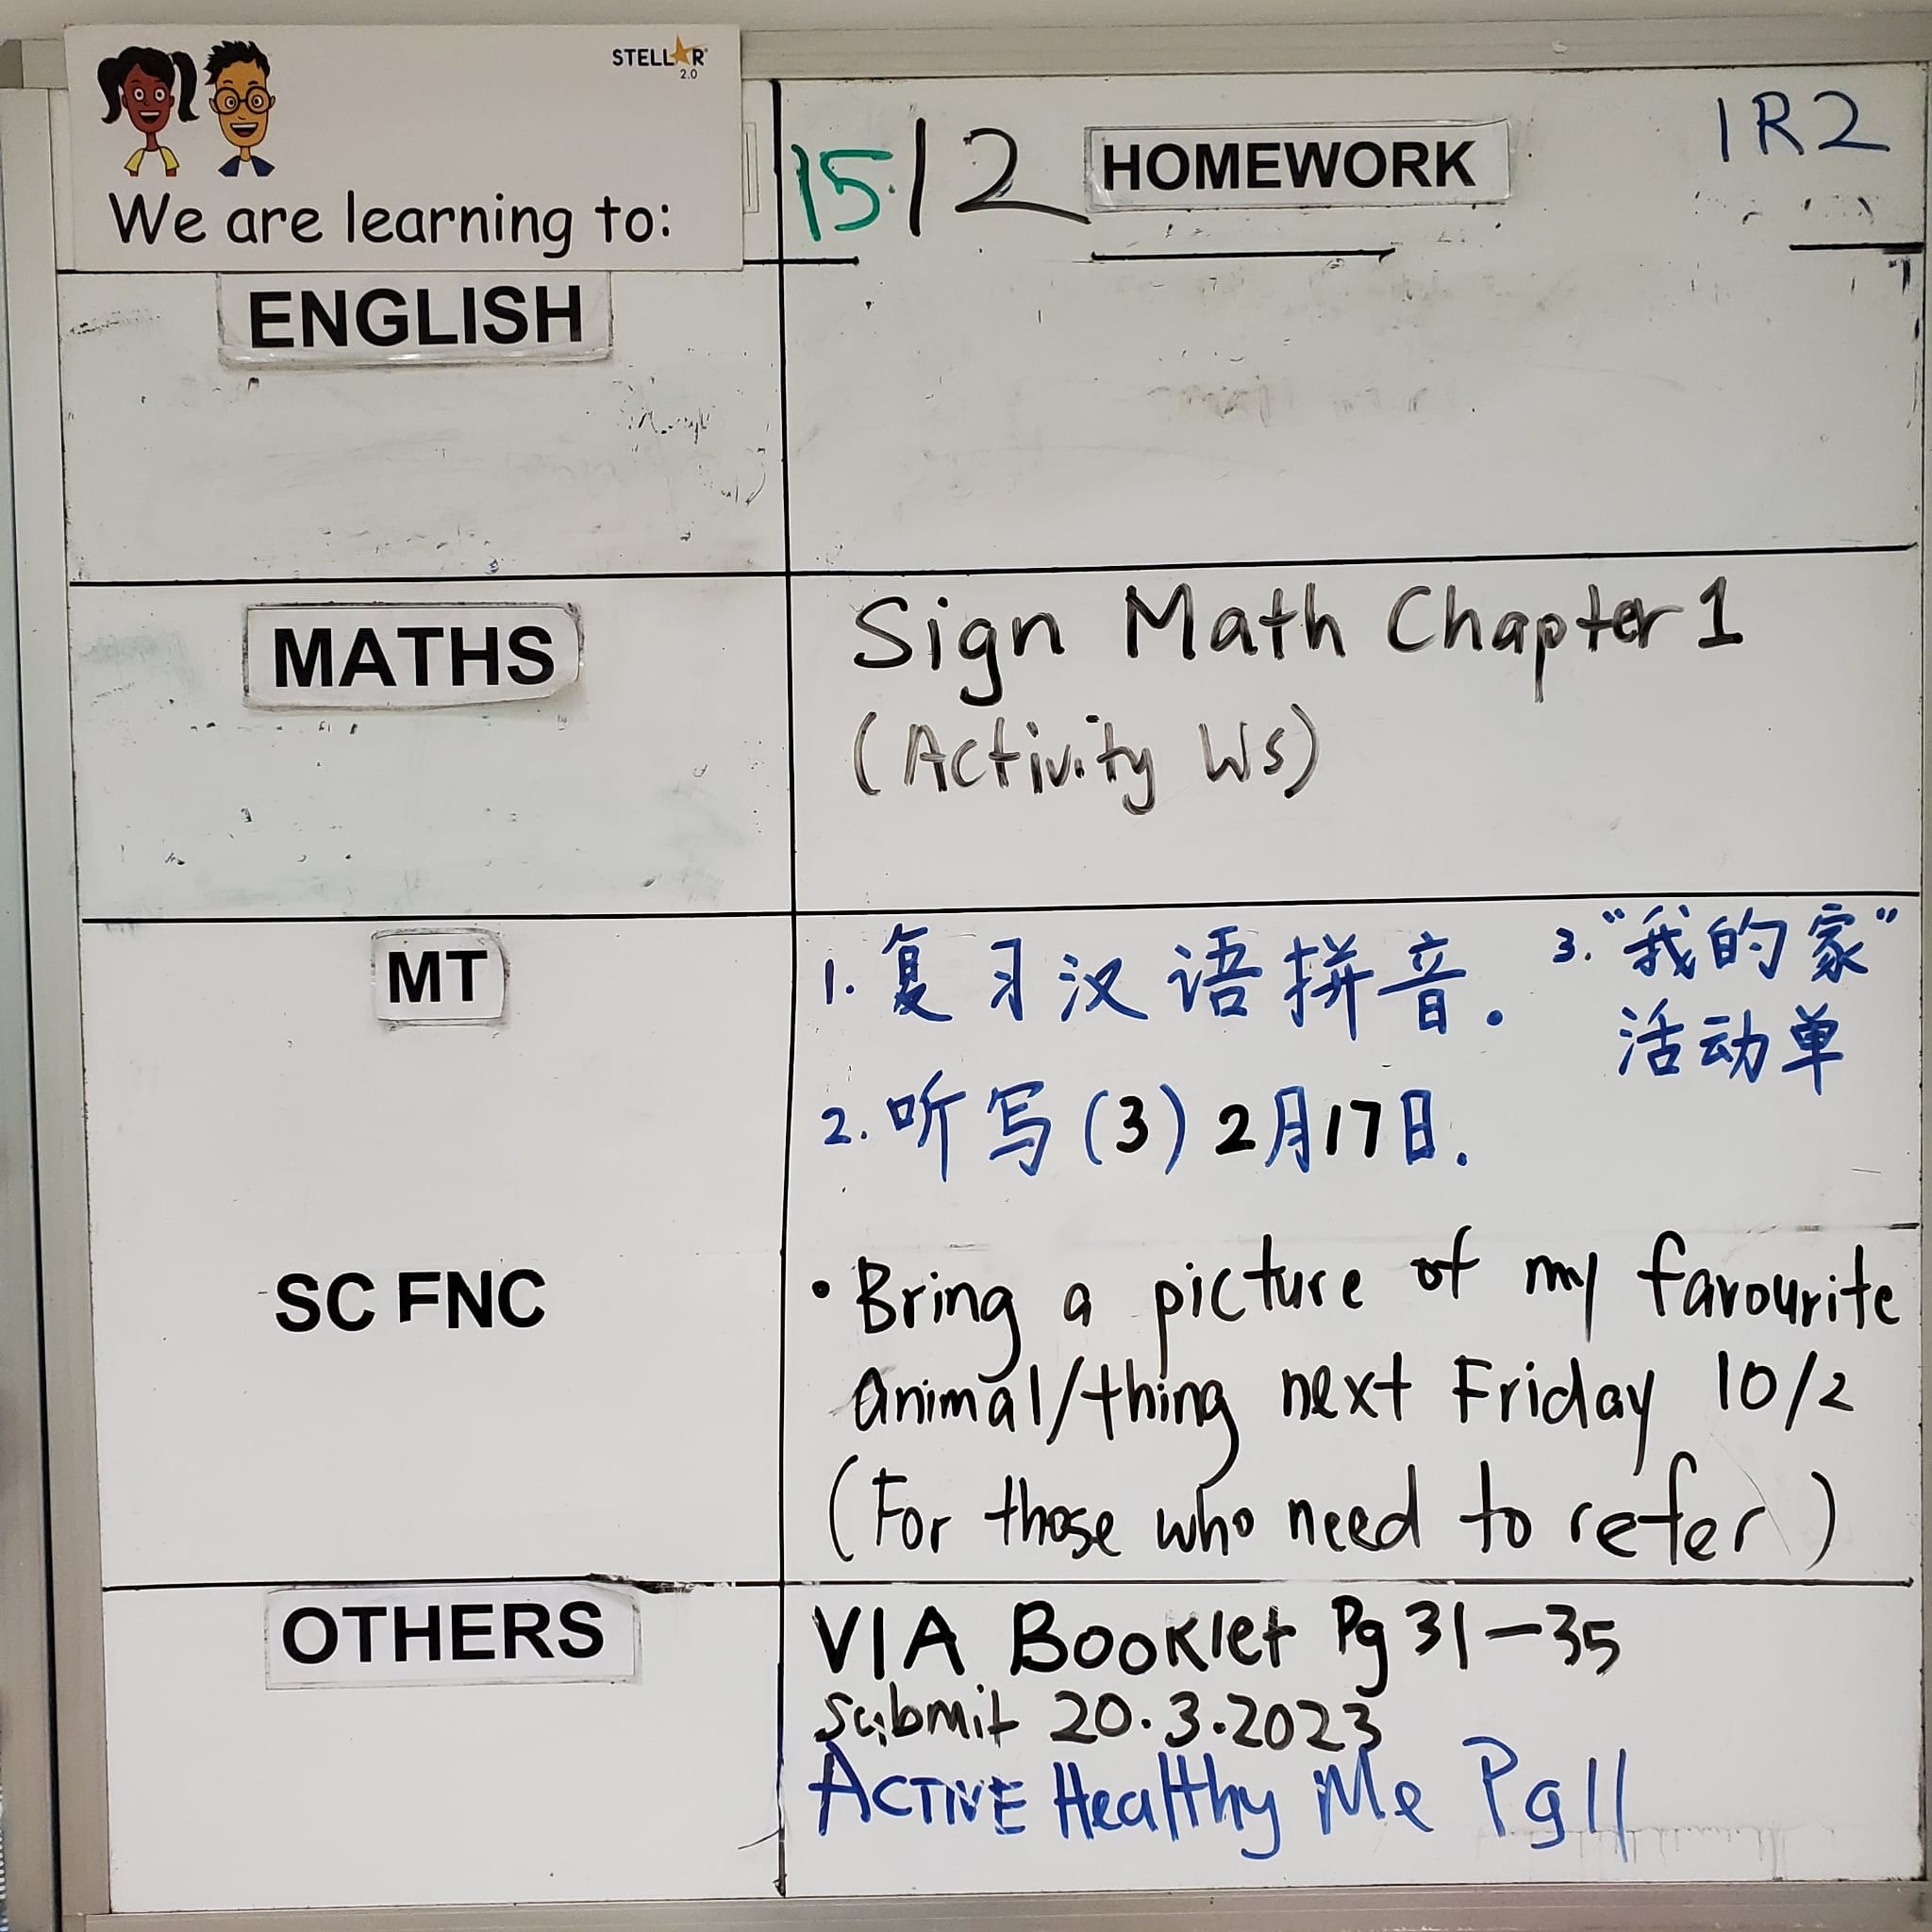 STELLAR
2.0
We are learning to:
15/2 HOMEWORK 1R2
ENGLISH
MATHS
Sign Math Chapter 1
(Activity WS)
MT
1. 复习汉语拼音.
2. 听写(3) 2月17日.
3. "我的家"
活动单
SC FNC
• Bring a picture of my favourite
animal/thing next Friday 10/2
(For those who need to refer)
OTHERS
VIA Booklet Pg 31-35
submit 20.3.2023
ACTIVE Healthy Me Pg11